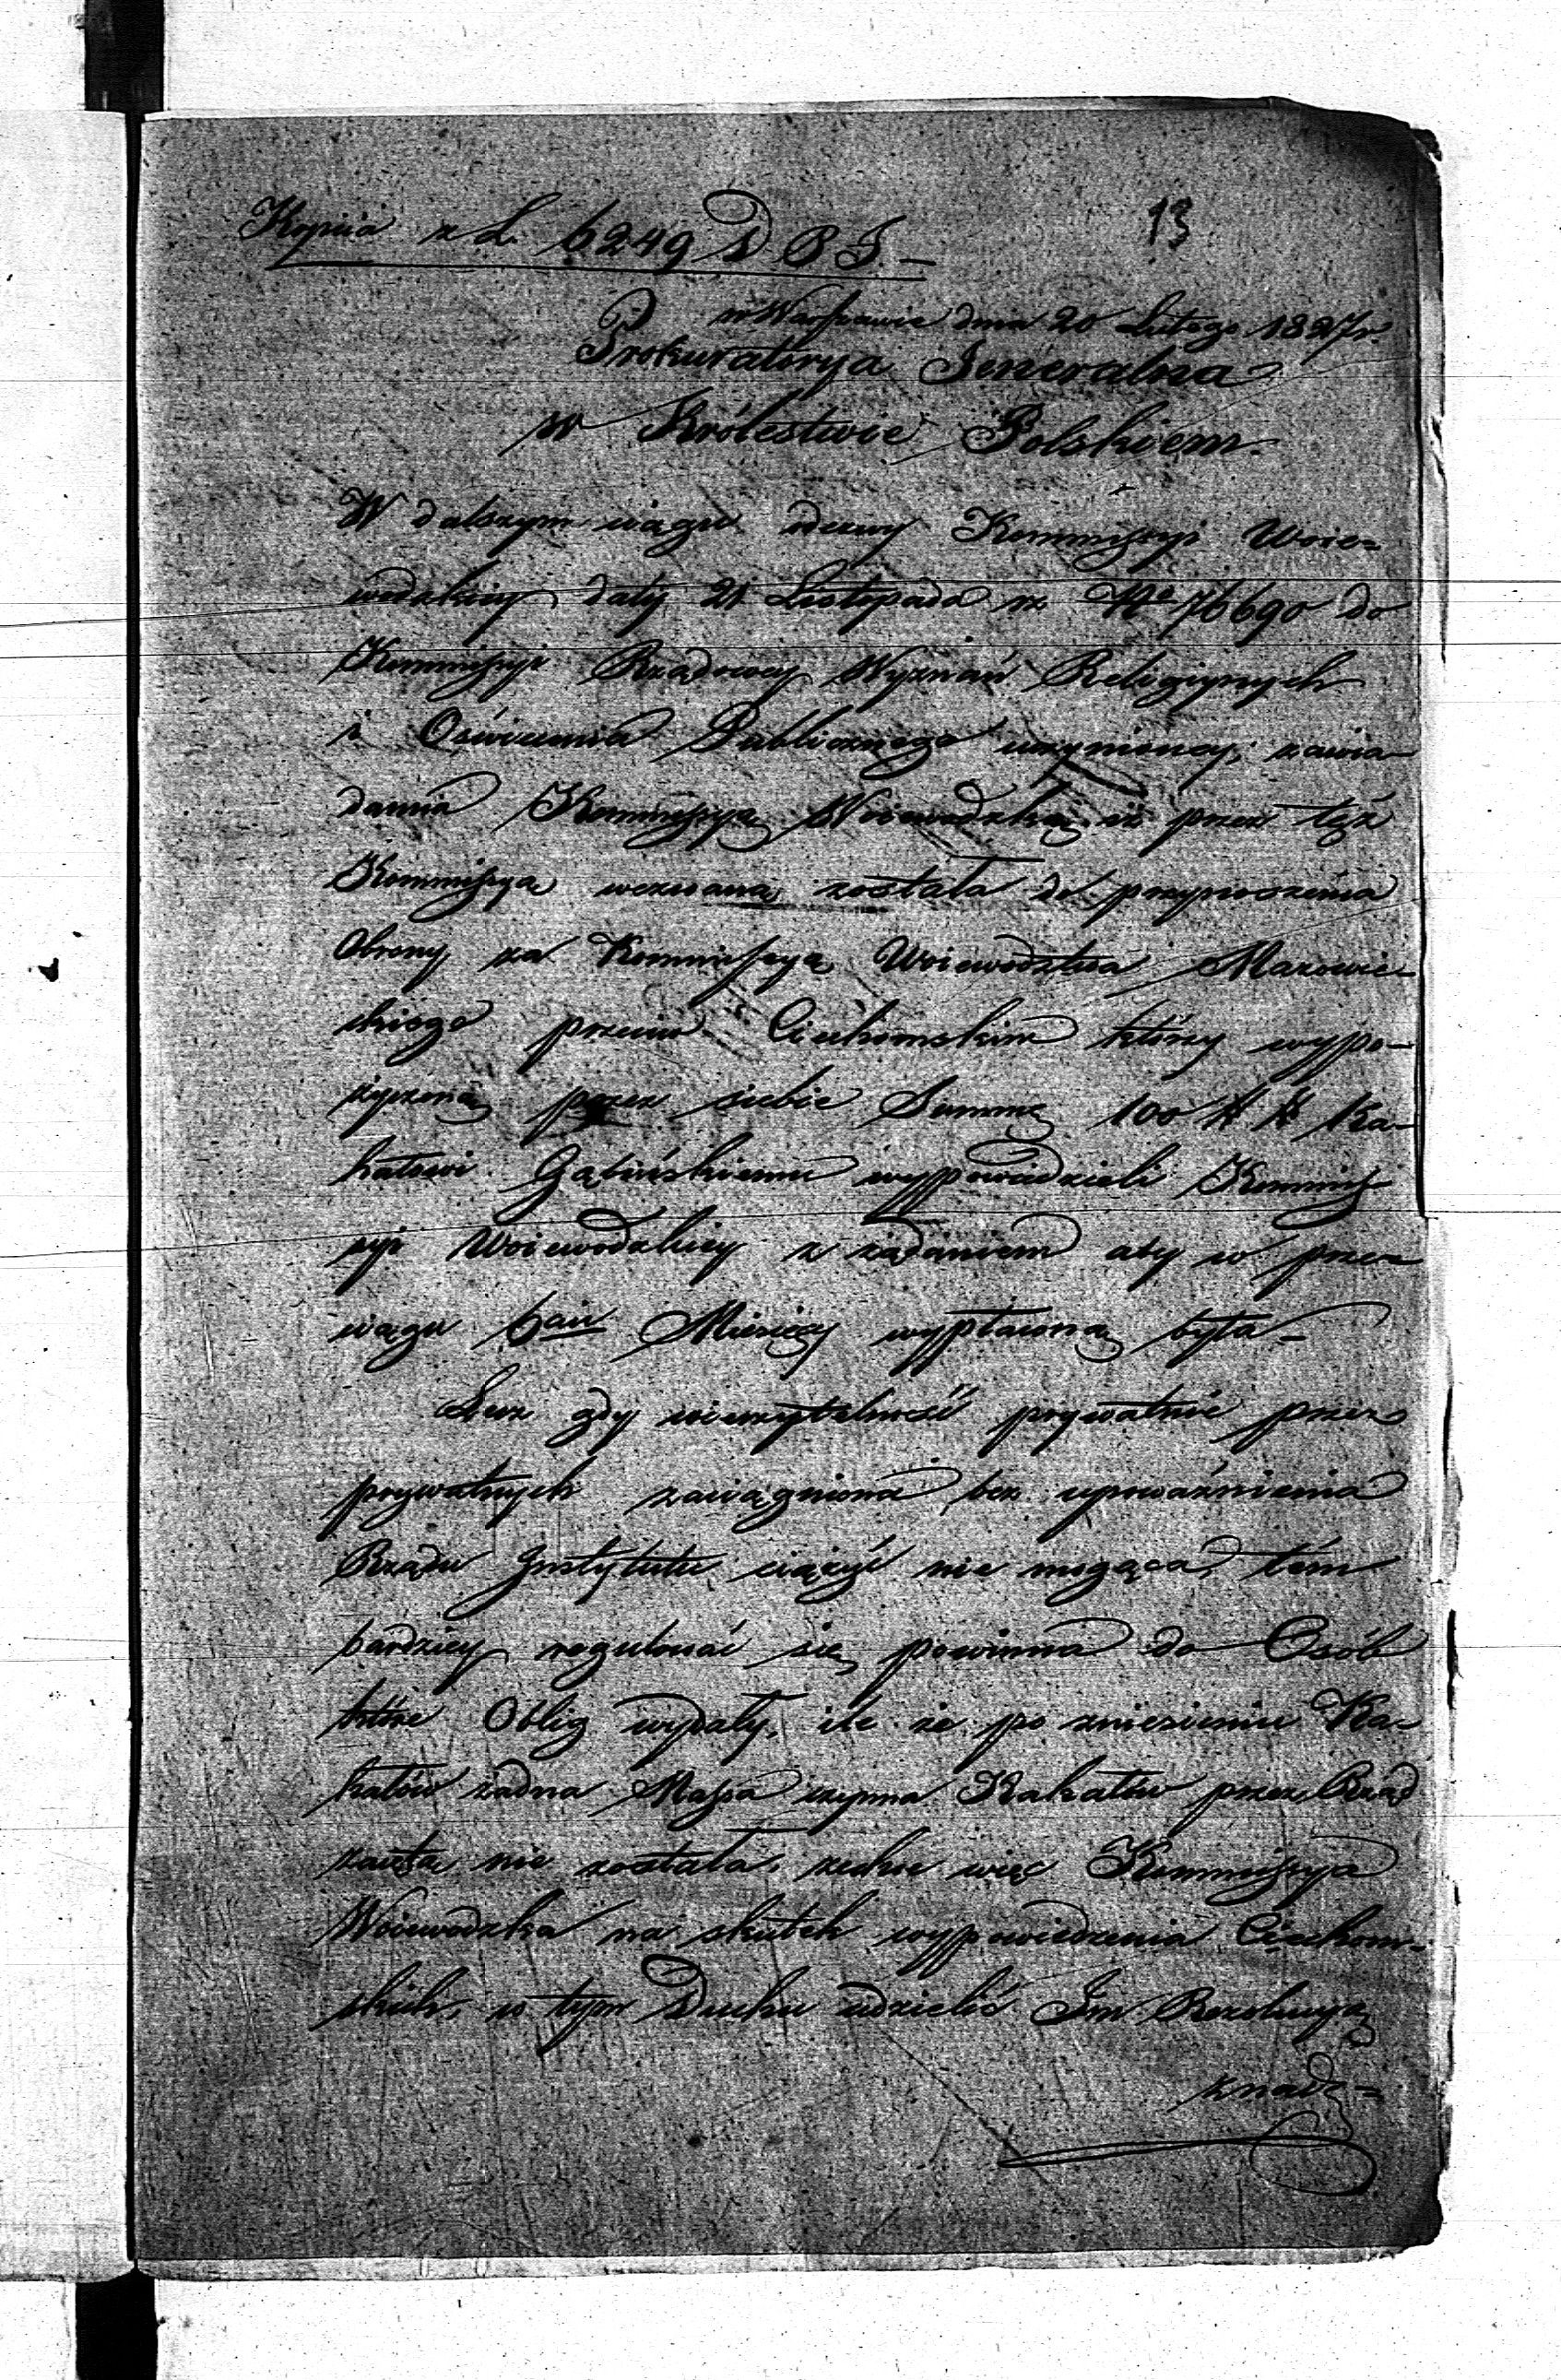 Kopiia z L. 6249 D. P. J. –
13
w Warszawie dnia 20 Lutego 1827 r.
Prokuratorya Jeneralna
w Królestwie Polskiem.
W dalszym ciągu odezwy Kommissyi Woie=
wodzkiey daty 21 Listopada z. No 76690 do
Kommissyi Rządowey Wyznań Religiynych
i Oświecenia Publicznego uczynioney, zawia-
damia Kommissyą Woiewodzką iż przez tęż
Kommissyą wezwaną została do przynoszenia
obrony za Kommissyą Woiewodztwa Mazowie-
ckiego przeciw Ciechomskim którzy wypo-
życzoną przez siebie Summę 100 # # Ka-
hałowi Gąbińskiemu wypowiedzieli Kommis-
syi Woiewodzkiey z żądaniem aby w prze
ciągu 6ciu Miesięcy wypłaconą była –
Lecz gdy wierzytelność prywatnie przez
prywatnych zaciągniona bez upoważnienia
Rządu Jnstytutu ciążyć nie mogąca, tém
bardziey regulować się powinna do Osób
które Oblig wydały, ile że po zniesieniu Ka-
hałów żadna Massa czynna Kahałów przez Rząd
zaiętą nie została, zechce więc Kommissya
Woiewodzka na skutek wypowiedzenia Ciechom-
skich, w tym Duchu udzielić Im Rezolucyą
znadz=